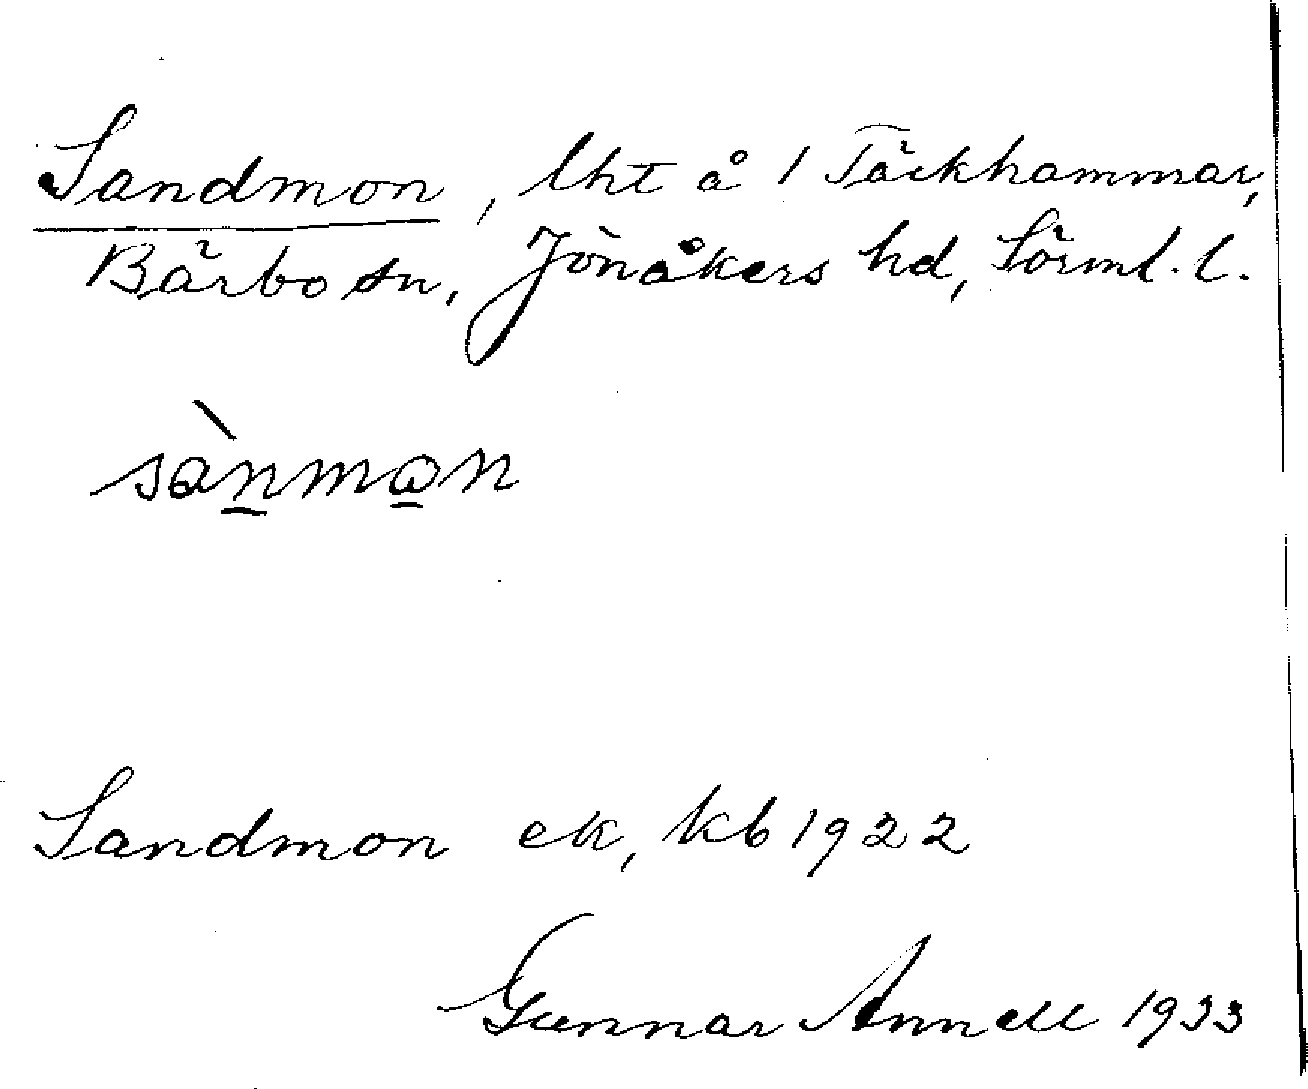 Sandmon, lht å 1 Täckhammar,
Bärbo sn, Jönåkers hd, Sörml. l.
sànmon
Sandmon ek, kb 1922
Gunnar Annell 1933